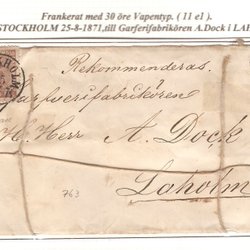 Frankerat med 30 öre Vapentyp. ( 11 e1 ).
STOCKHOLM 25-8-1871,till Garferifabrikören A.Dock i LAH
Rekommenderas.
H. Herr A. Dock
Laholm
763